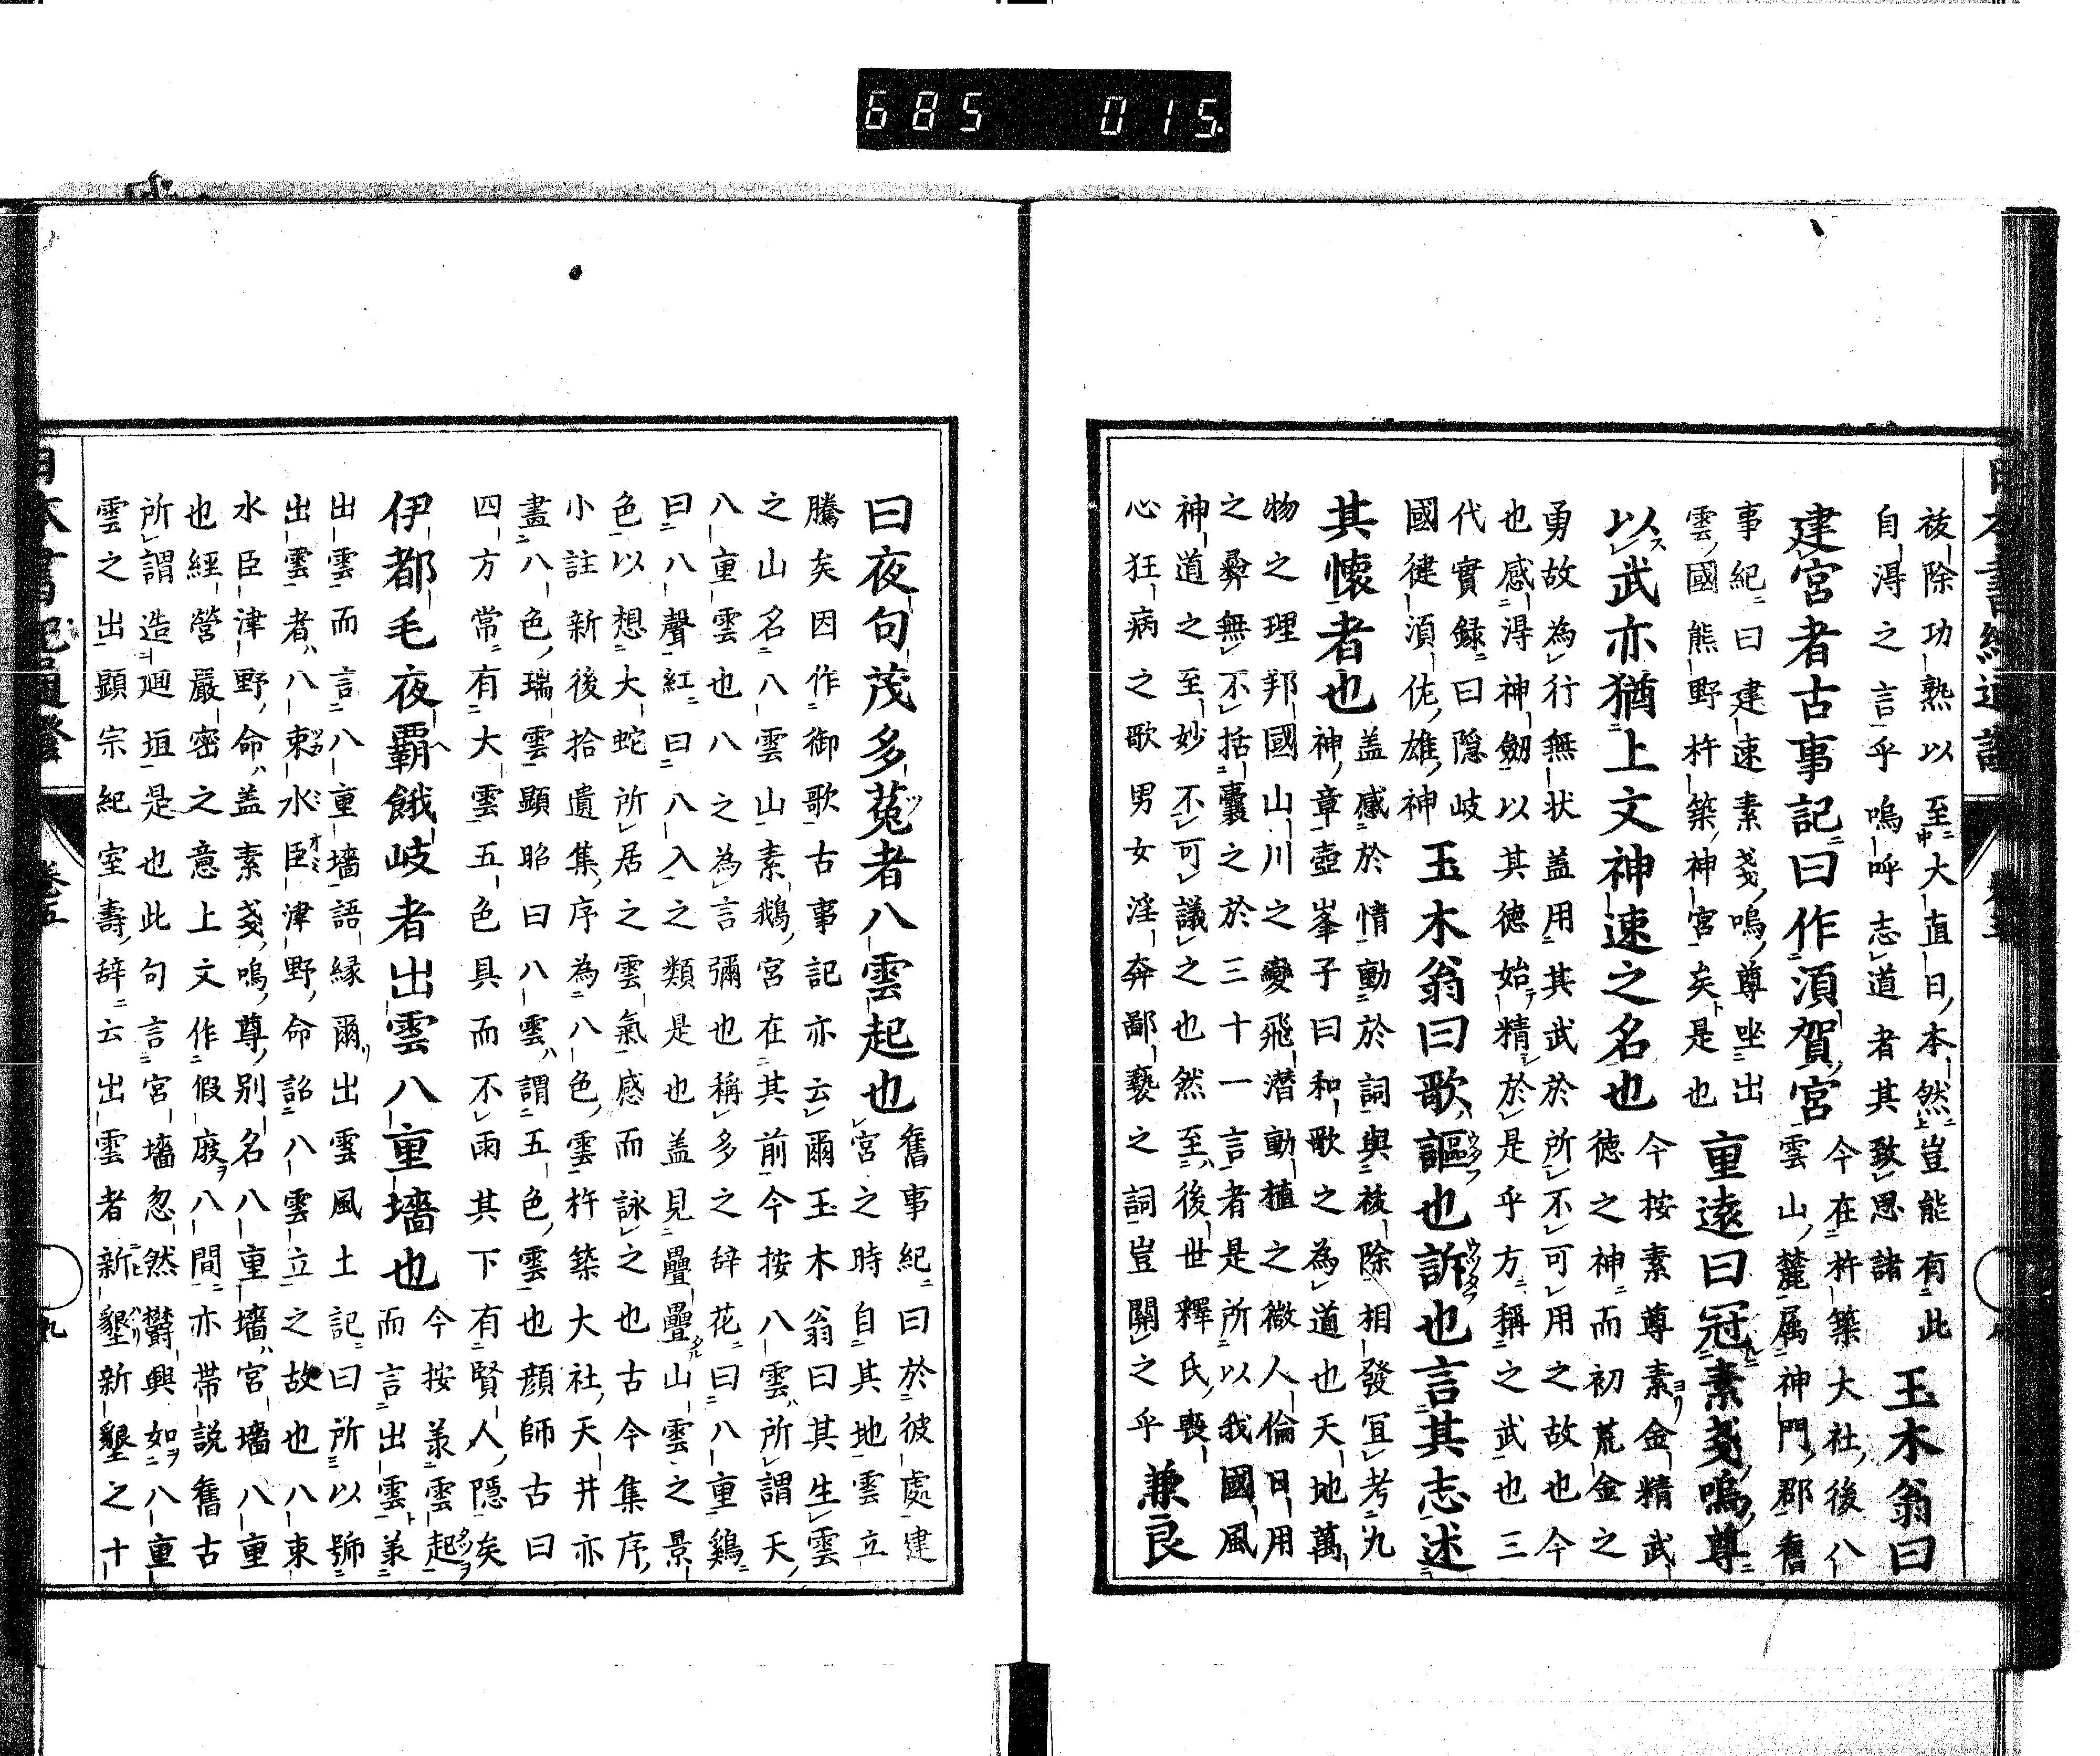 祓除功熟以至大直日本然豈能有此
自淂之言乎嗚呼志道者其致思諸
玉木翁曰
建宮者古事記曰作湏賀宮
今在杵築大社後八
雲山麓属神門郡舊
事紀曰建速素戔嗚尊坐出
雲國熊野杵築神宮矣是也
重遠曰冠素戔嗚尊
以武亦猶上文神速之名也
今按素尊素金精武
德之神而初荒金之
勇故為行無状盖用其武於所不可用之故也今
也感淂神劔以其德始精於是乎方稱之武也三
代實録曰隠岐
國健湏佐雄神
玉木翁曰歌謳也訴也言其志述
其懷者也
盖感於情動於詞與祓除相發宜考九
神章壺峯子曰和歌之為道也天地萬
物之理邦國山川之變飛潜動植之微人倫日用
之彝無不括囊之於三十一言者是所以我國風
神道之至妙不可議之也然至後世釋氏喪
心狂病之歌男女淫奔鄙褻之詞豈關之乎
兼良
曰夜句茂多菟者八雲起也
舊事紀曰於彼處建
宮之時自其地雲立
騰矣因作御歌古事記亦云爾玉木翁曰其生雲
之山名八雲山素鵝宮在其前今按八雲所謂天
八重雲也八之為言彌也稱多之辞花曰八重鷄
曰八聲紅曰八入之類是也盖見疊疊山雲之景
色以想大蛇所居之雲氣感而詠之也古今集序
小註新後拾遺集序為八色雲杵築大社天井亦
畫八色瑞雲顕昭曰八雲謂五色雲也顔師古曰
四方常有大雲五色具而不雨其下有賢人隠矣
伊都毛夜覇餓岐者出雲八重墻也
今按羕雲起
而言出雲羕
出雲而言八重墻語縁爾出雲風土記曰所以號
出雲者八束水臣津野命詔八雲立之故也八束
水臣津野命盖素戔嗚尊別名八重墻宮墻八重
也經營嚴密之意上文作假庪八間亦帯説舊古
所謂造廻垣是也此句言宮墻忽然欝興如八重
雲之出顕宗紀室壽辞云出雲者新墾新墾之十
685 015